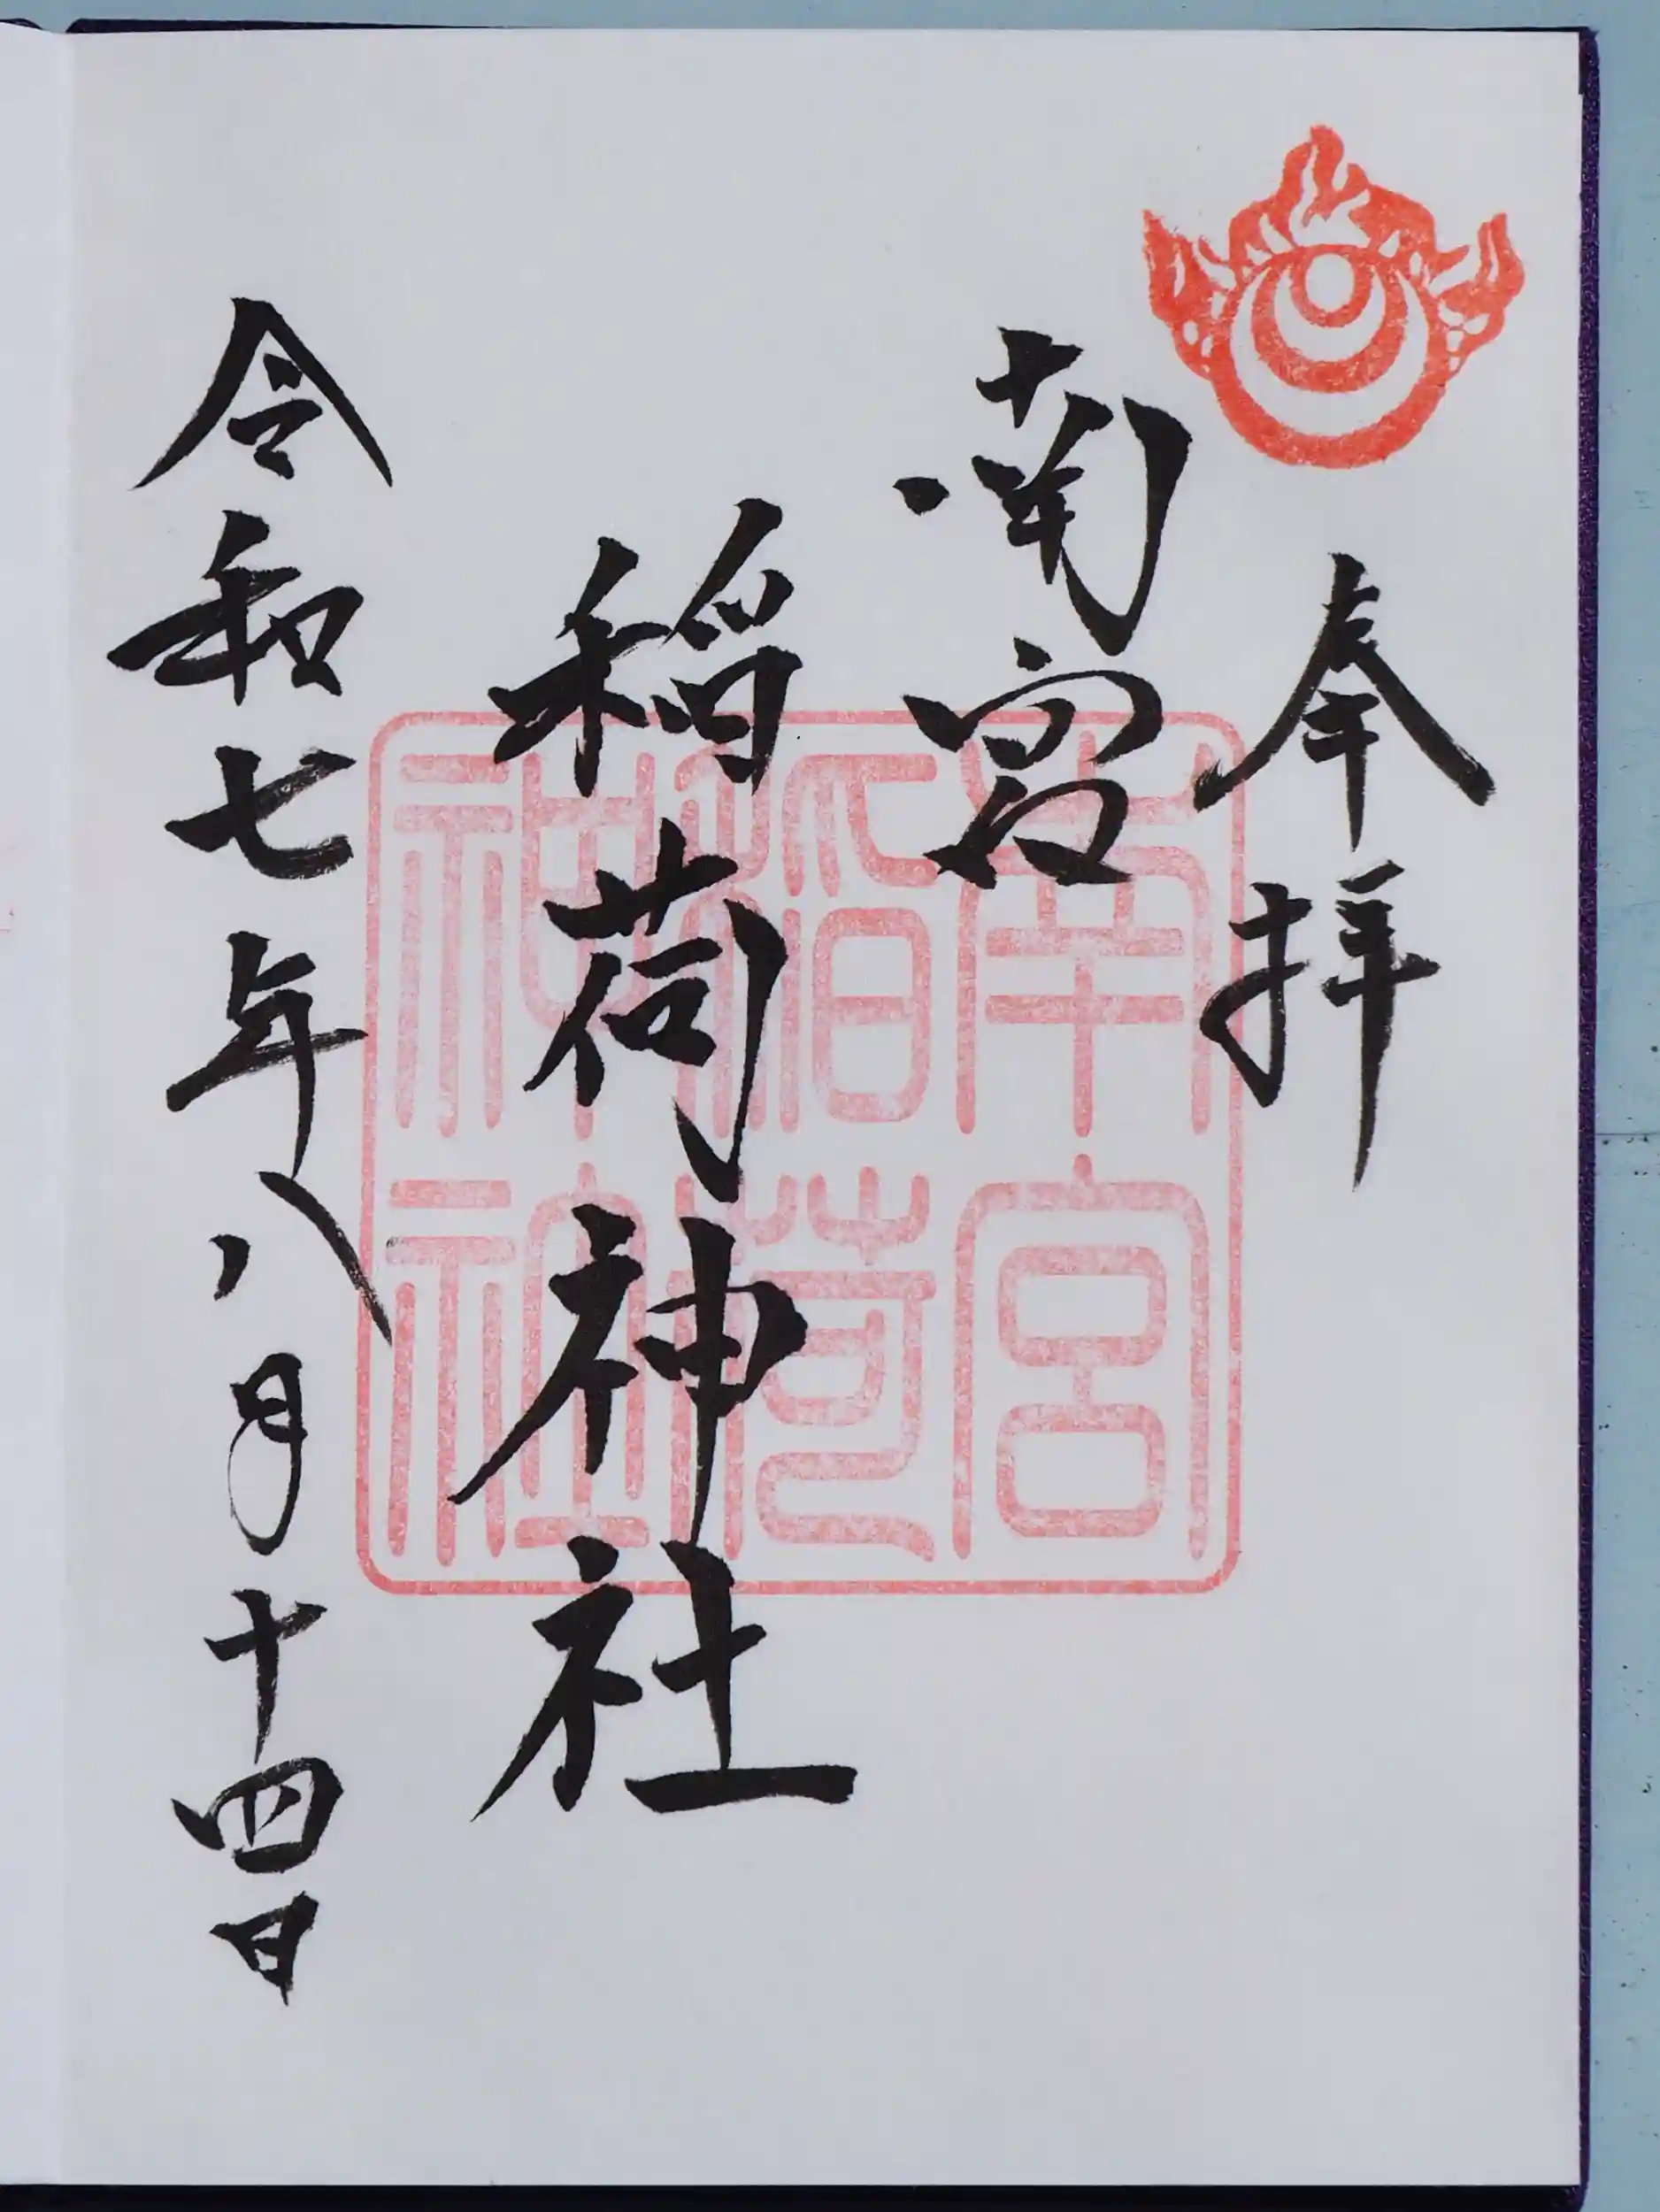 奉拝
南宮
稲荷神社
令和七年八月十四日
南宮
稲荷
神社